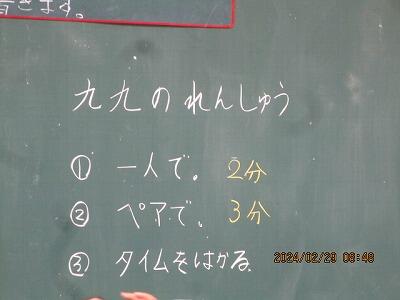 書きます。
九九のれんしゅう
① 一人で。 2分
② ペアで。 3分
③ タイムをはかる。
2024/02/29 08:48